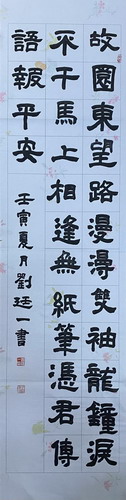 故園東望路漫漫雙袖龍鐘淚
不干馬上相逢無紙筆憑君傳
語報平安
壬寅夏月劉廷一書